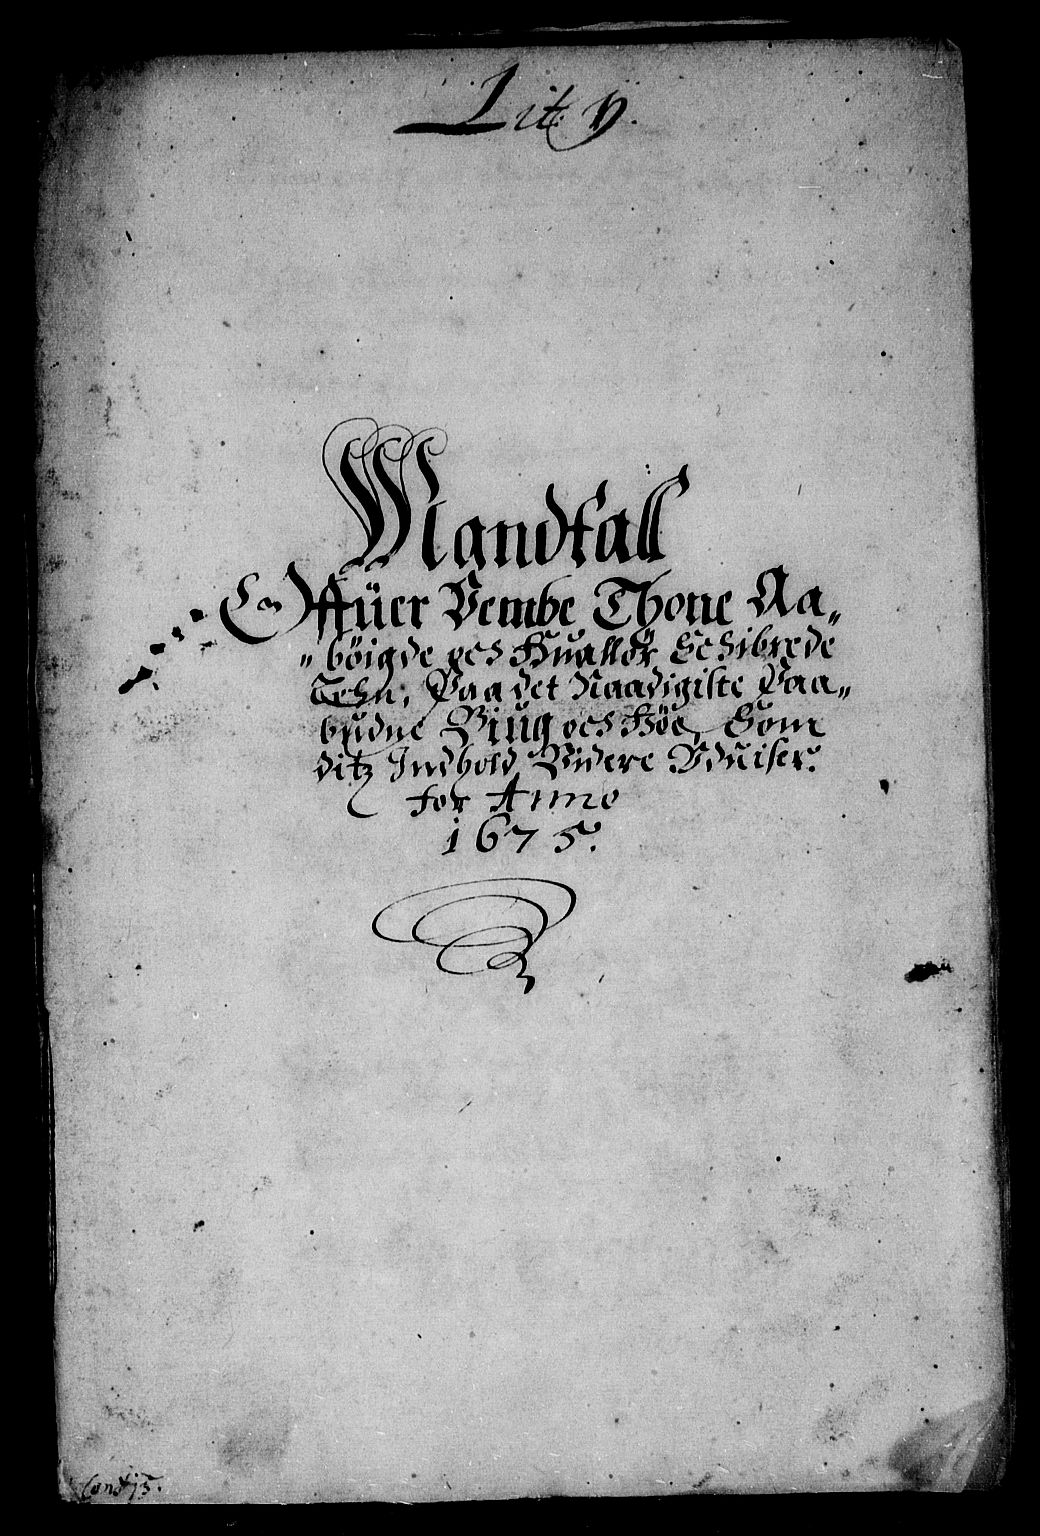 Lit. y.
Mandtall
Offuer Vembe Thone Aa„
„böigde och Huallör Schibrede
Tehn, Paa det Naadigiste Paa„
budne Biug och Höe, Som
ditz Indhold Videre Vduiser.
for Anno
1675.